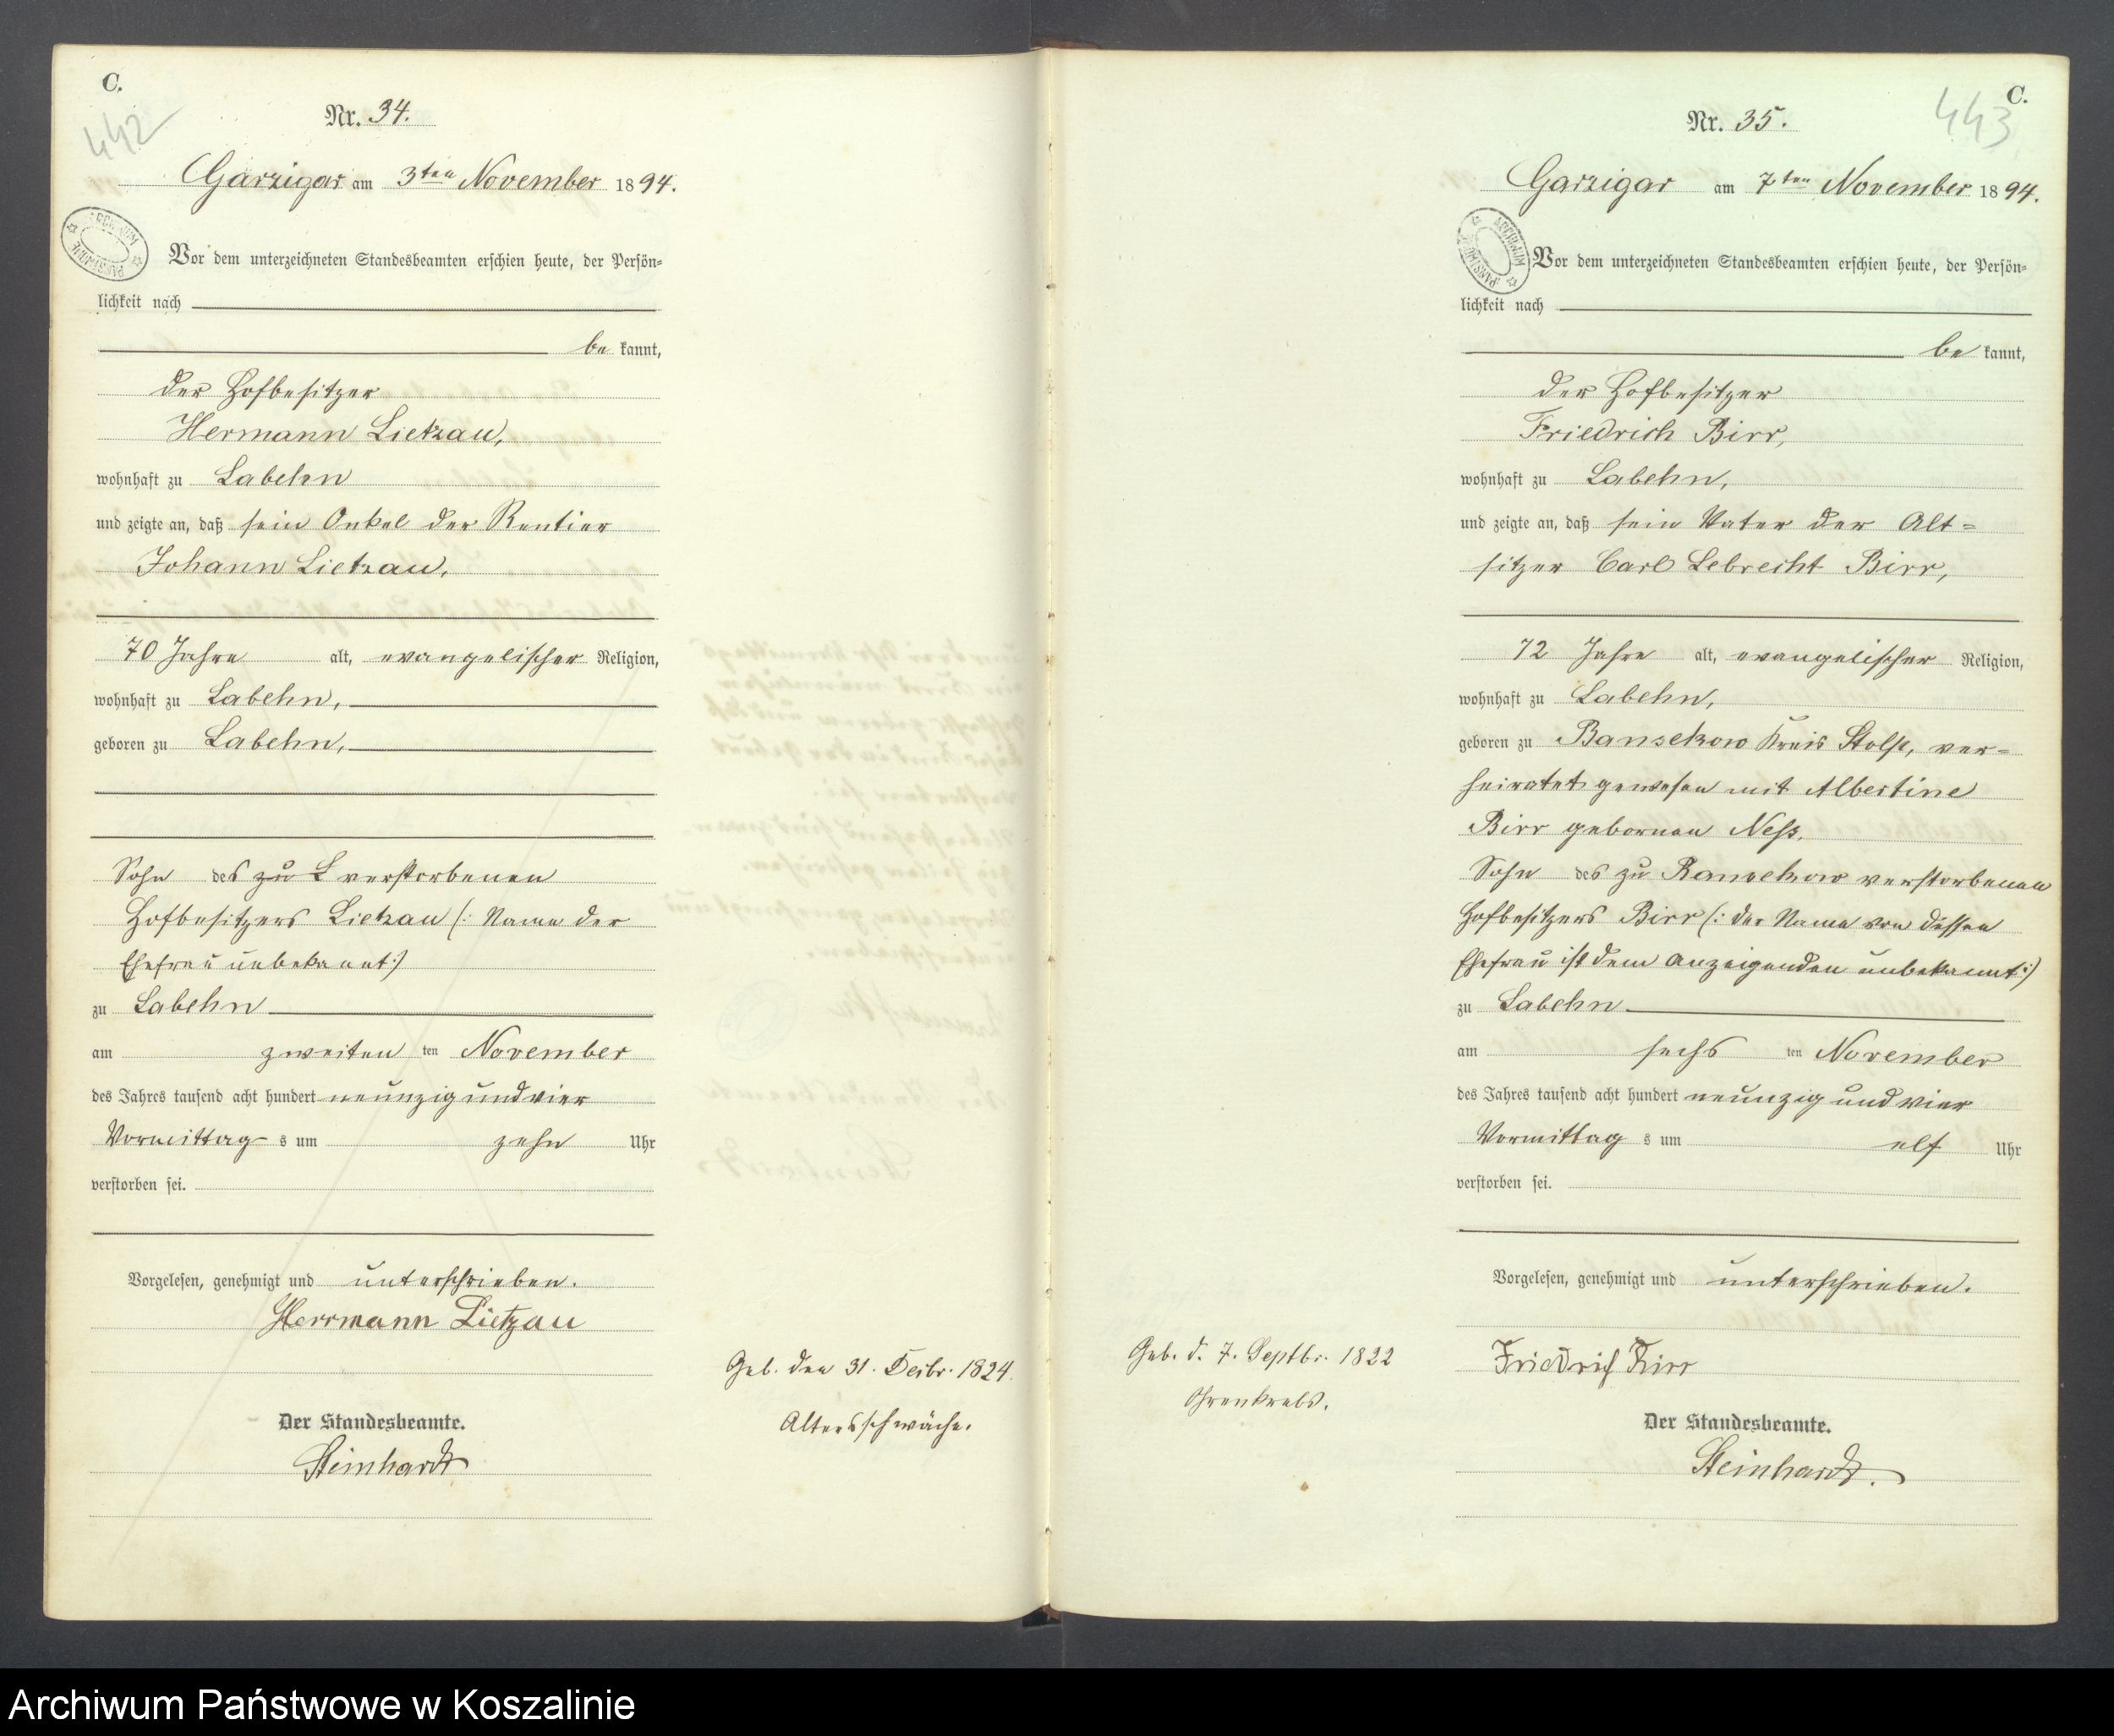 C.
442
Nr. 34.
Garzigar am 3ten November 1894.
ARCHIWUM PAŃSTWOWE
Vor dem unterzeichneten Standesbeamten erschien heute, der Persön=
lichkeit nach
be kannt,
der Hofbesitzer
Hermann Lietzau,
wohnhaft zu Labehn
und zeigte an, daß sein Onkel der Rentier
Johann Lietzau,
70 Jahre alt, evangelischer Religion,
wohnhaft zu Labehn,
geboren zu Labehn,
Sohn des zu L verstorbenen
Hofbesitzers Lietzau (: Name der
Ehefrau unbekannt:)
zu Labehn
am zweiten ten November
des Jahres tausend acht hundert neunzig und vier
Vormittag s um zehn Uhr
verstorben sei.
Vorgelesen, genehmigt und unterschrieben.
Herrmann Lietzau
Der Standesbeamte.
Steinhardt
Geb. den 31. Dezbr. 1824.
Altersschwäche.
C.
443
Nr. 35.
Garzigar am 7ten November 1894.
ARCHIWUM PAŃSTWOWE
Vor dem unterzeichneten Standesbeamten erschien heute, der Persön=
lichkeit nach
be kannt,
der Hofbesitzer
Friedrich Birr,
wohnhaft zu Labehn,
und zeigte an, daß sein Vater der Alt=
sitzer Carl Lebrecht Birr,
72 Jahre alt, evangelischer Religion,
wohnhaft zu Labehn,
geboren zu Bansekow Kreis Stolp, ver=
heiratet gewesen mit Albertine
Birr gebornen Neß,
Sohn des zu Bansekow verstorbenen
Hofbesitzers Birr (: der Name von dessen
Ehefrau ist dem Anzeigenden unbekannt:)
zu Labehn
am sechs ten November
des Jahres tausend acht hundert neunzig und vier
Vormittag s um elf Uhr
verstorben sei.
Vorgelesen, genehmigt und unterschrieben.
Friedrich Birr
Der Standesbeamte.
Steinhardt.
Geb. d. 7. Septbr. 1822
Ohrenkrebs.
Archiwum Państwowe w Koszalinie